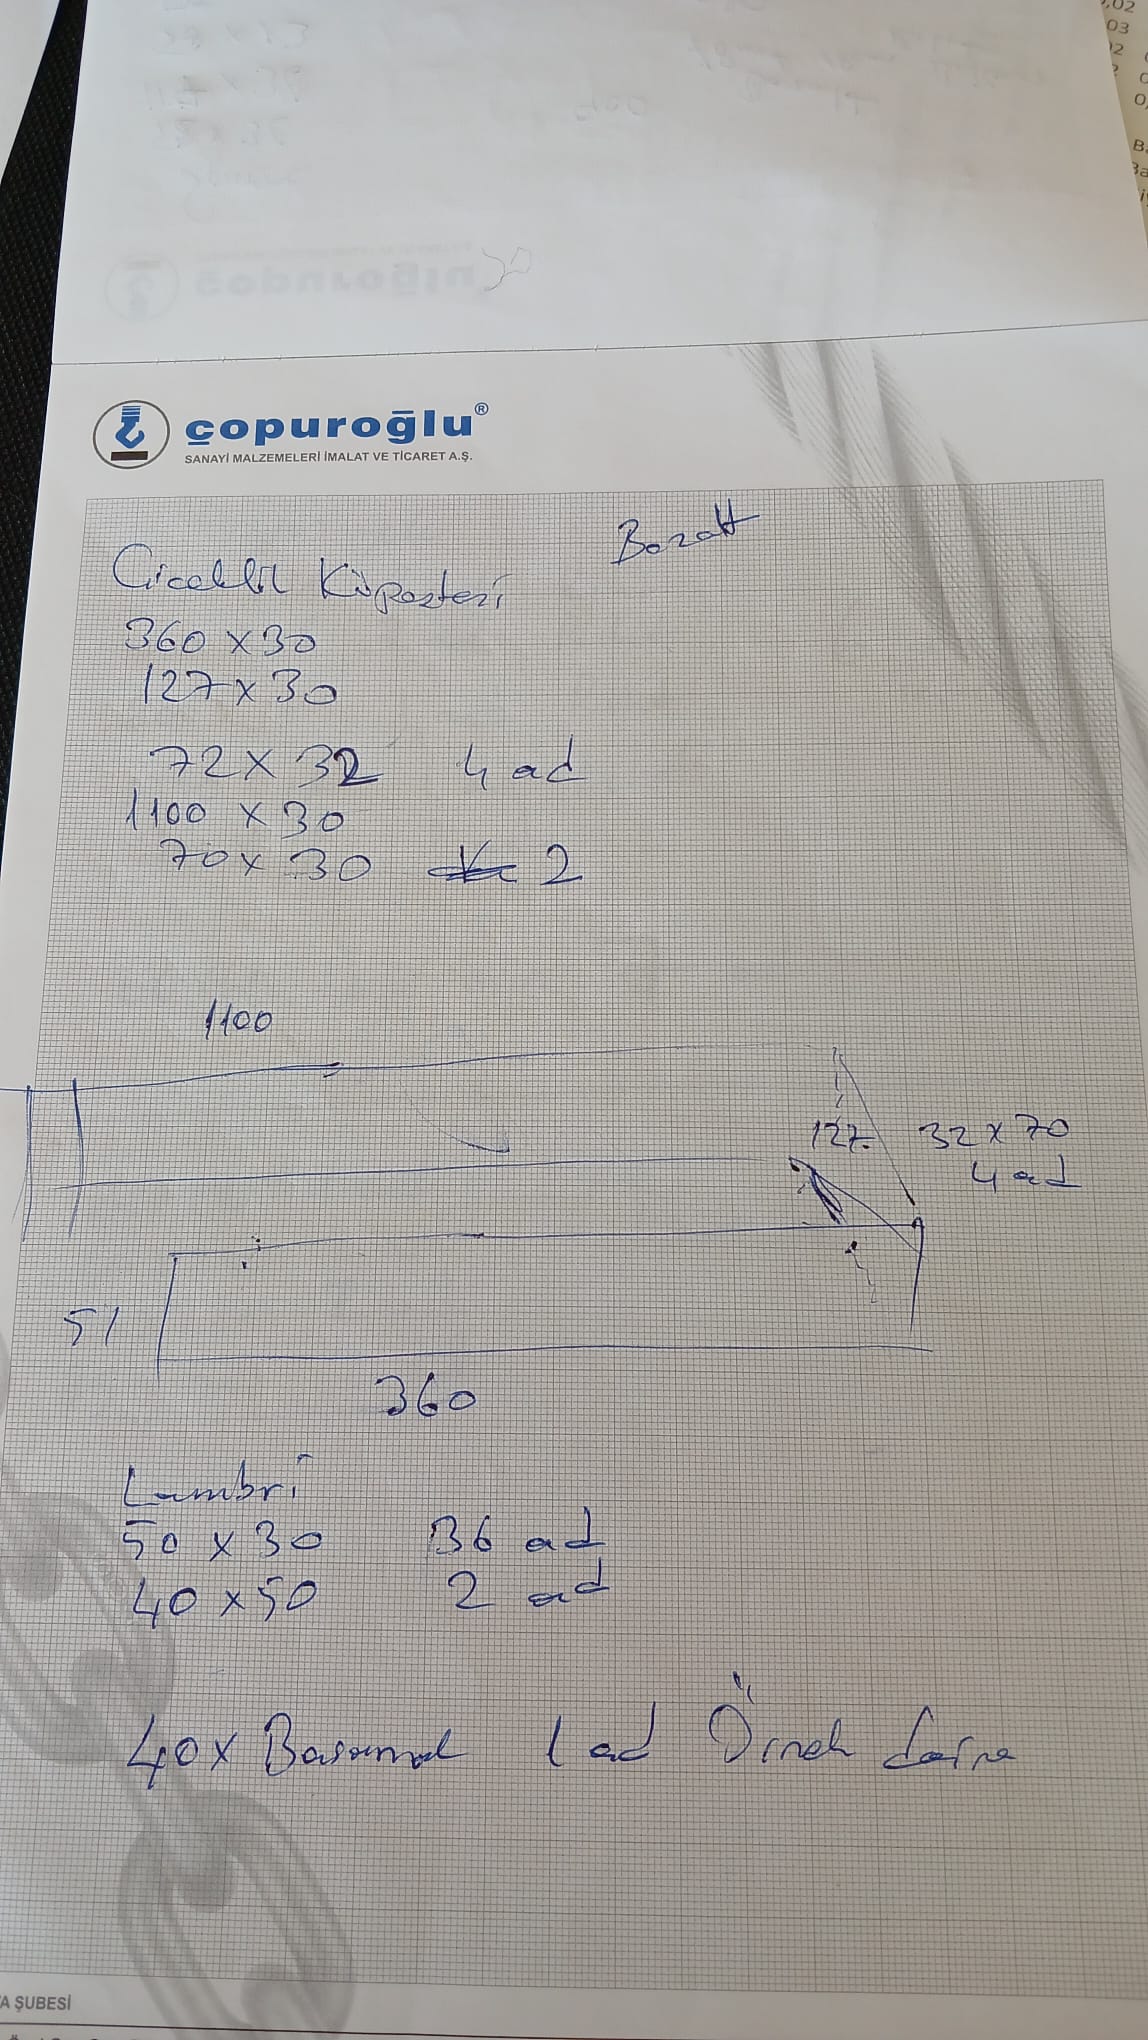 ,02
03
02
0,
çopuroğlu®
SANAYİ MALZEMELERİ İMALAT VE TİCARET A.Ş.
Bozatt
Cicekli Küpestesi
360 x 30
127 x 30
72 x 32 4 ad
1100 x 30
70 x 30 2
1100
127 32 x 70
4 ad
51
360
Lambri
50 x 30 36 ad
40 x 50 2 ad
40x Basamak 1 ad Örnek daire
A ŞUBESİ